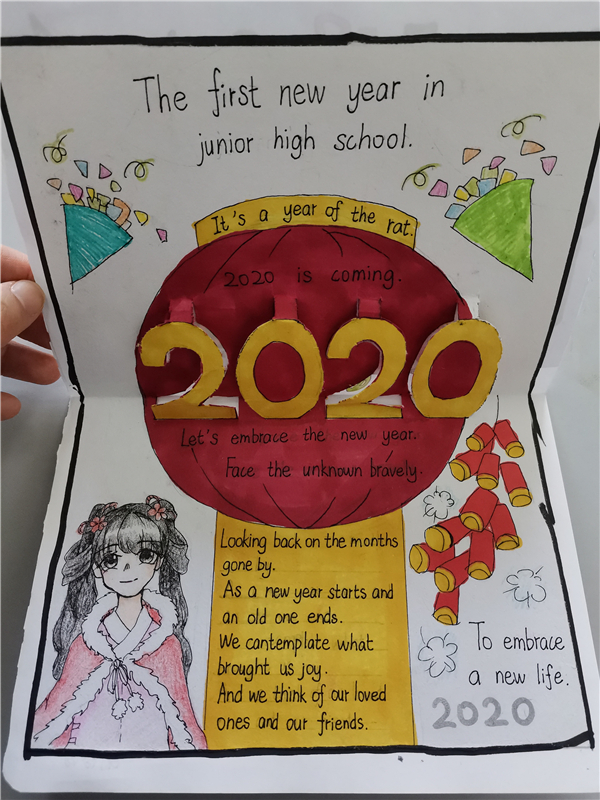 The first new year in
junior high school.
It's a year of the rat.
2020 is coming.
2020
Let's embrace the new year.
Face the unknown bravely.
Looking back on the months
gone by.
As a new year starts and
an old one ends.
We contemplate what
brought us joy.
And we think of our loved
ones and our friends.
To embrace
a new life.
2020